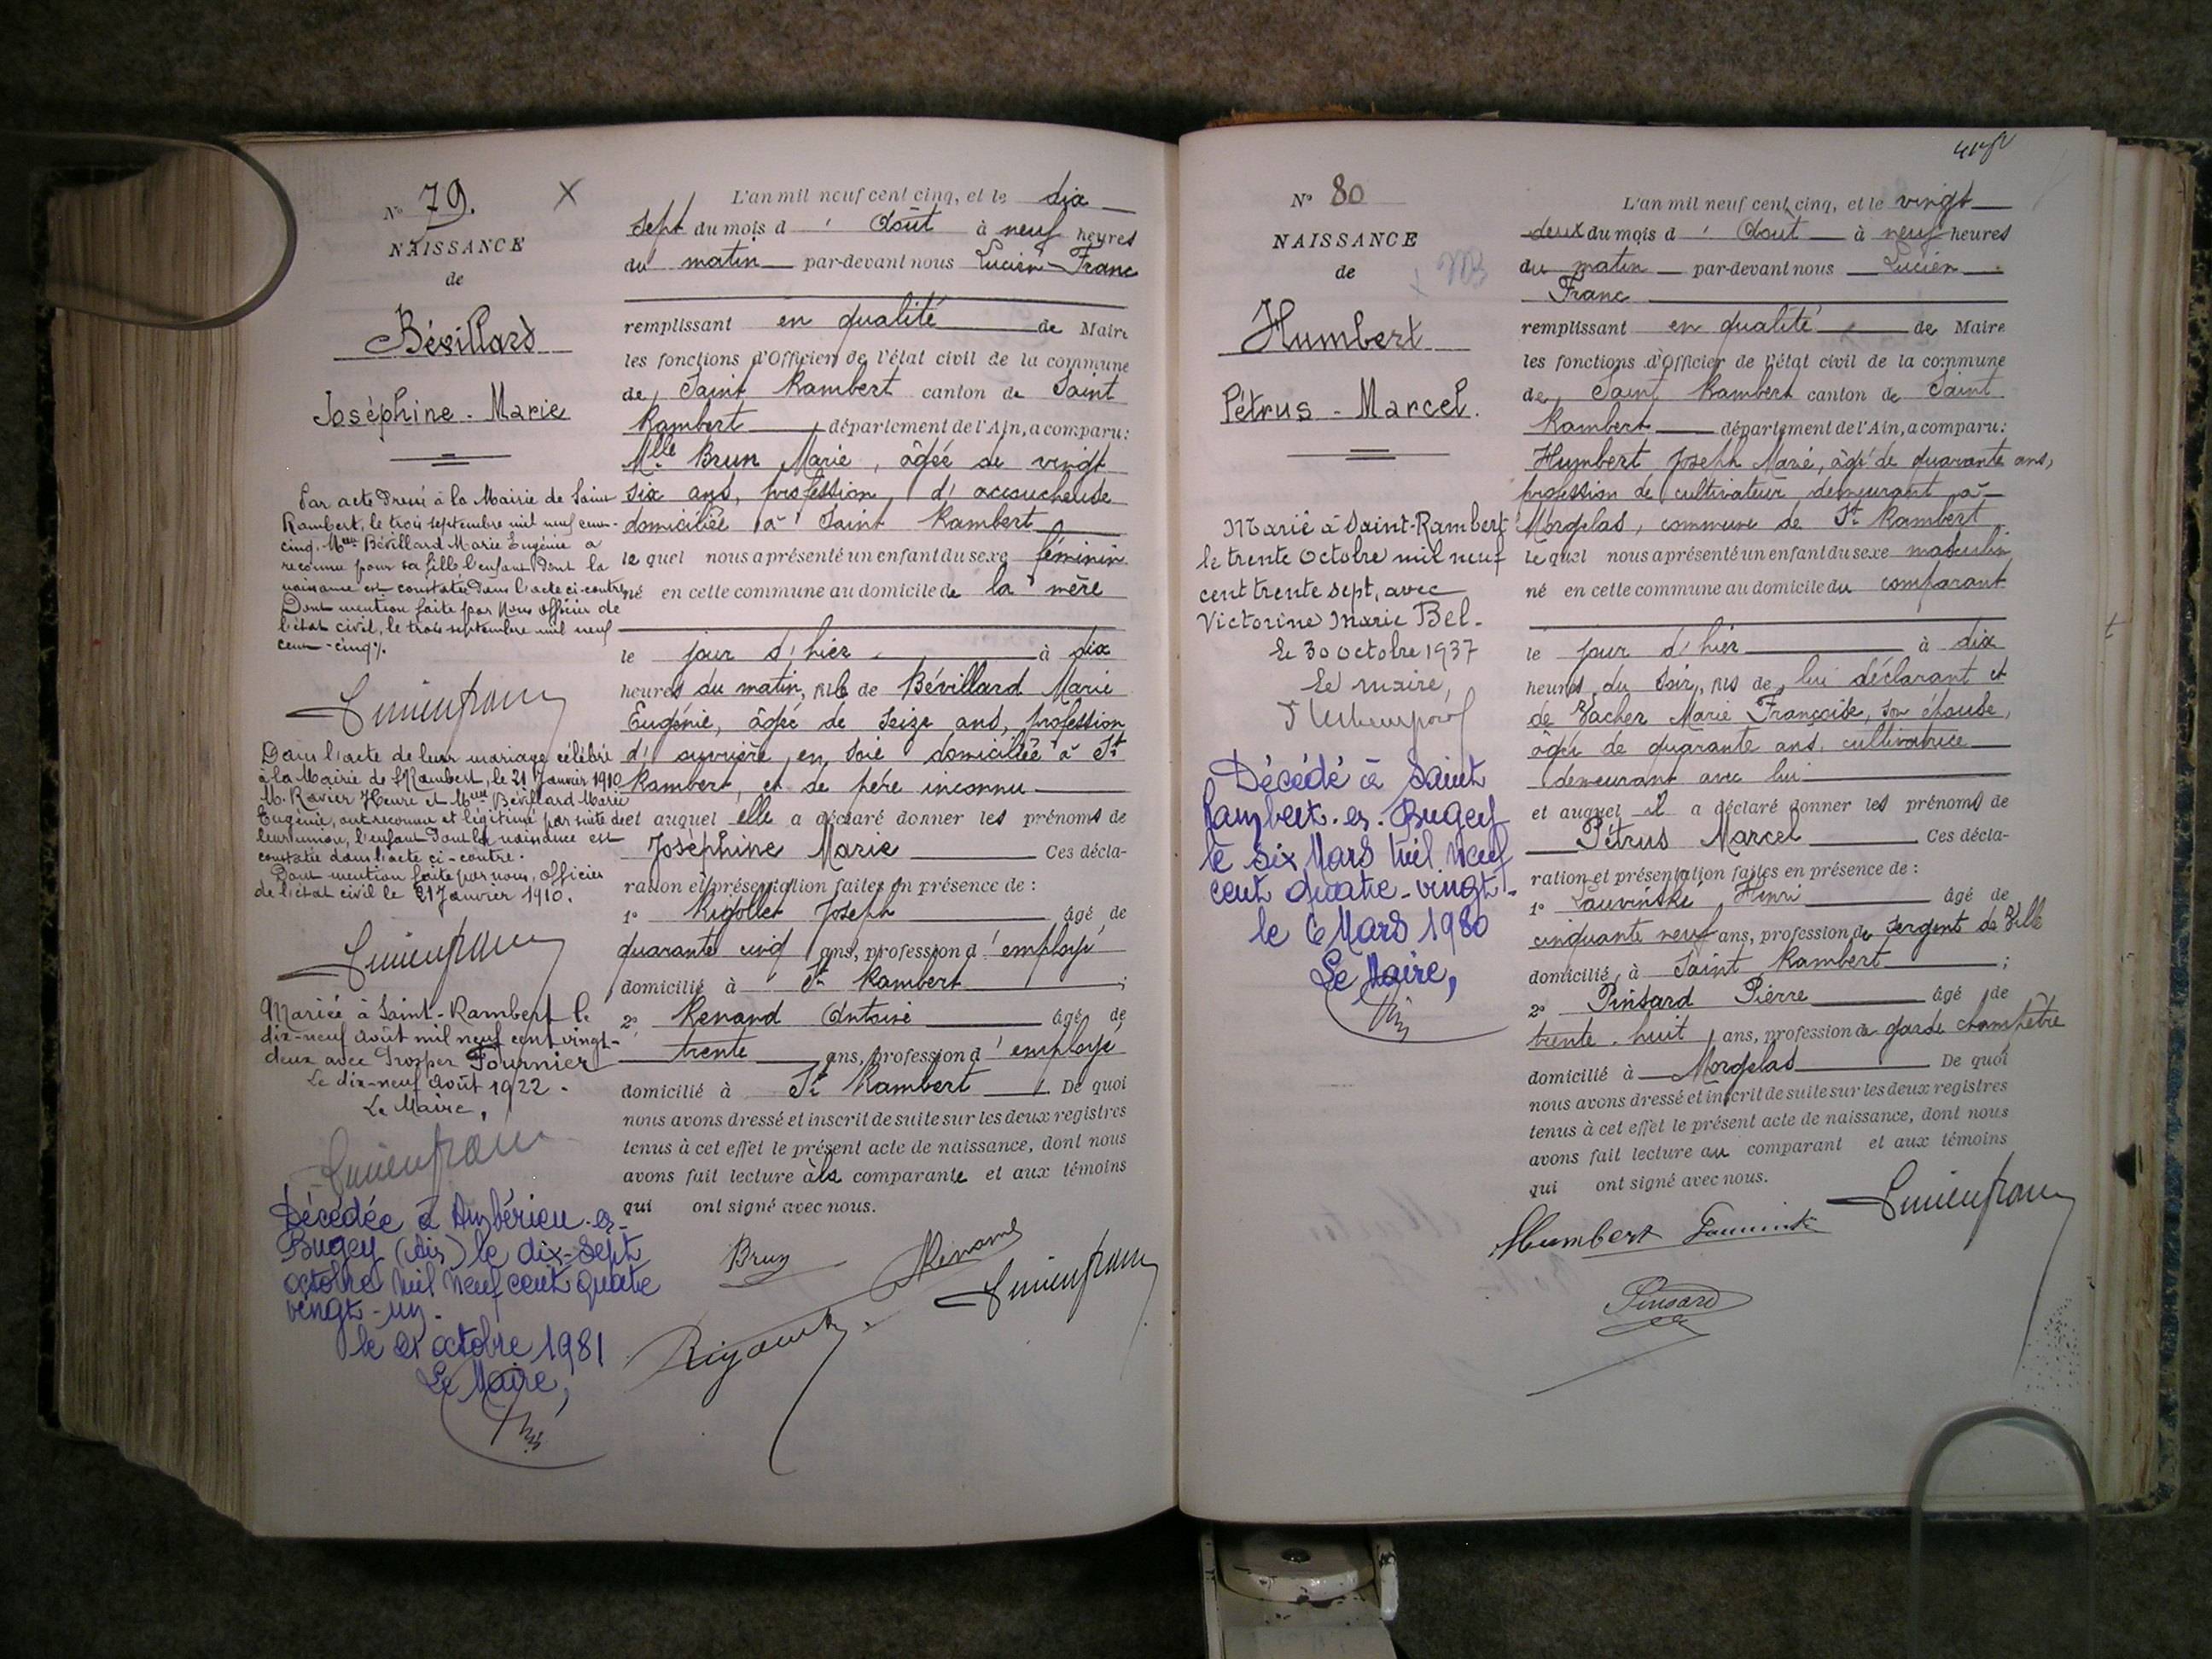 N° 79.
NAISSANCE
de
Bévillard
Joséphine - Marie
Par acte dressé à la Mairie de Saint
Rambert, le trois septembre mil neuf cent-
cinq. Melle Bévillard Marie Eugénie a
reconnu pour sa fille l'enfant dont la
naissance est constatée dans l'acte ci-contre
Dont mention faite par Nous officier de
l'état civil, le trois septembre mil neuf
cent-cinq.
Lucien Franc
Dans l'acte de leur mariage célébré
à la Mairie de St Rambert, le 21 Janvier 1910
M. Ravier Henri et Melle Bévillard Marie
Eugénie, ont reconnu et légitimé par suite de
leur union, l'enfant dont la naissance est
constatée dans l'acte ci-contre.
Dont mention faite par nous, officier
de l'état civil le 21 Janvier 1910.
Lucien Franc
Mariée à Saint-Rambert le
dix-neuf août mil neuf cent vingt-
deux avec Prosper Fournier
Le dix-neuf août 1922.
Le Maire,
Lucien Franc
Décédée à Ambérieu-en-
Bugey (Ain) le dix-sept
octobre mil neuf cent quatre
vingt-un.
le 21 octobre 1981
Le Maire,
L'an mil neuf cent cinq, et le dix
sept du mois d' Août à neuf heures
du matin par-devant nous Lucien Franc
remplissant en qualité de Maire
les fonctions d'Officier de l'état civil de la commune
de Saint Rambert canton de Saint
Rambert département de l'Ain, a comparu:
Mlle Brun Marie, âgée de vingt
six ans, profession d'accoucheuse
domiciliée à Saint Rambert
le quel nous a présenté un enfant du sexe féminin
né en cette commune au domicile de la mère
le jour d'hier à dix
heures du matin, fille de Bévillard Marie
Eugénie, âgée de seize ans, profession
d'ouvrière en soie domiciliée à St
Rambert, et de père inconnu
et auquel elle a déclaré donner les prénoms de
Joséphine Marie Ces décla-
ration et présentation faites en présence de :
1° Rigollet Joseph âgé de
quarante cinq ans, profession d'employé
domicilié à St Rambert ;
2° Renand Antoine âgé de
trente ans, profession d'employé
domicilié à St Rambert . De quoi
nous avons dressé et inscrit de suite sur les deux registres
tenus à cet effet le présent acte de naissance, dont nous
avons fait lecture à la comparante et aux témoins
qui ont signé avec nous.
Brun
Renand
Lucien Franc
N° 80
NAISSANCE
de
Humbert
Pétrus - Marcel.
Marié à Saint-Rambert
le trente Octobre mil neuf
cent trente sept, avec
Victorine Marie Bel.
Le 30 octobre 1937
Le maire,
Décédé à Saint
Rambert-en-Bugey
le six Mars mil neuf
cent quatre-vingt-
le 6 Mars 1980
Le Maire,
L'an mil neuf cent cinq, et le vingt
deux du mois d' Août à neuf heures
du matin par-devant nous Lucien
Franc
remplissant en qualité de Maire
les fonctions d'Officier de l'état civil de la commune
de Saint Rambert canton de Saint
Rambert département de l'Ain, a comparu:
Humbert Joseph Marie, âgé de quarante ans,
profession de cultivateur demeurant à
Morgelas, commune de St Rambert
le quel nous a présenté un enfant du sexe masculin
né en cette commune au domicile du comparant
le jour d'hier à dix
heures du soir, fils de lui déclarant et
de Vacher Marie Françoise, son épouse,
âgée de quarante ans, cultivatrice
demeurant avec lui
et auquel il a déclaré donner les prénoms de
Pétrus Marcel Ces décla-
ration et présentation faites en présence de :
1° Henri âgé de
cinquante neuf ans, profession de sergent de Ville
domicilié à Saint Rambert ;
2° Pinsard Pierre âgé de
trente huit ans, profession de garde champêtre
domicilié à Morgelas De quoi
nous avons dressé et inscrit de suite sur les deux registres
tenus à cet effet le présent acte de naissance, dont nous
avons fait lecture au comparant et aux témoins
qui ont signé avec nous.
Lucien Franc
Humbert
Pinsard